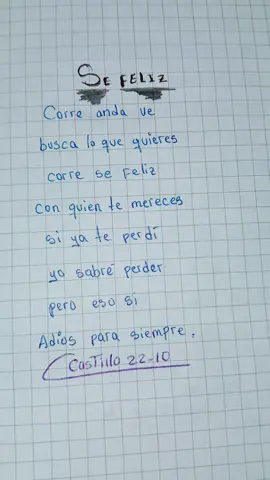 SE FELIZ
Corre anda ve
busca lo que quieres
corre se Feliz
con quien te mereces
si ya te perdí
yo sabré perder
pero eso si
Adiós para siempre.
Castillo 22-10